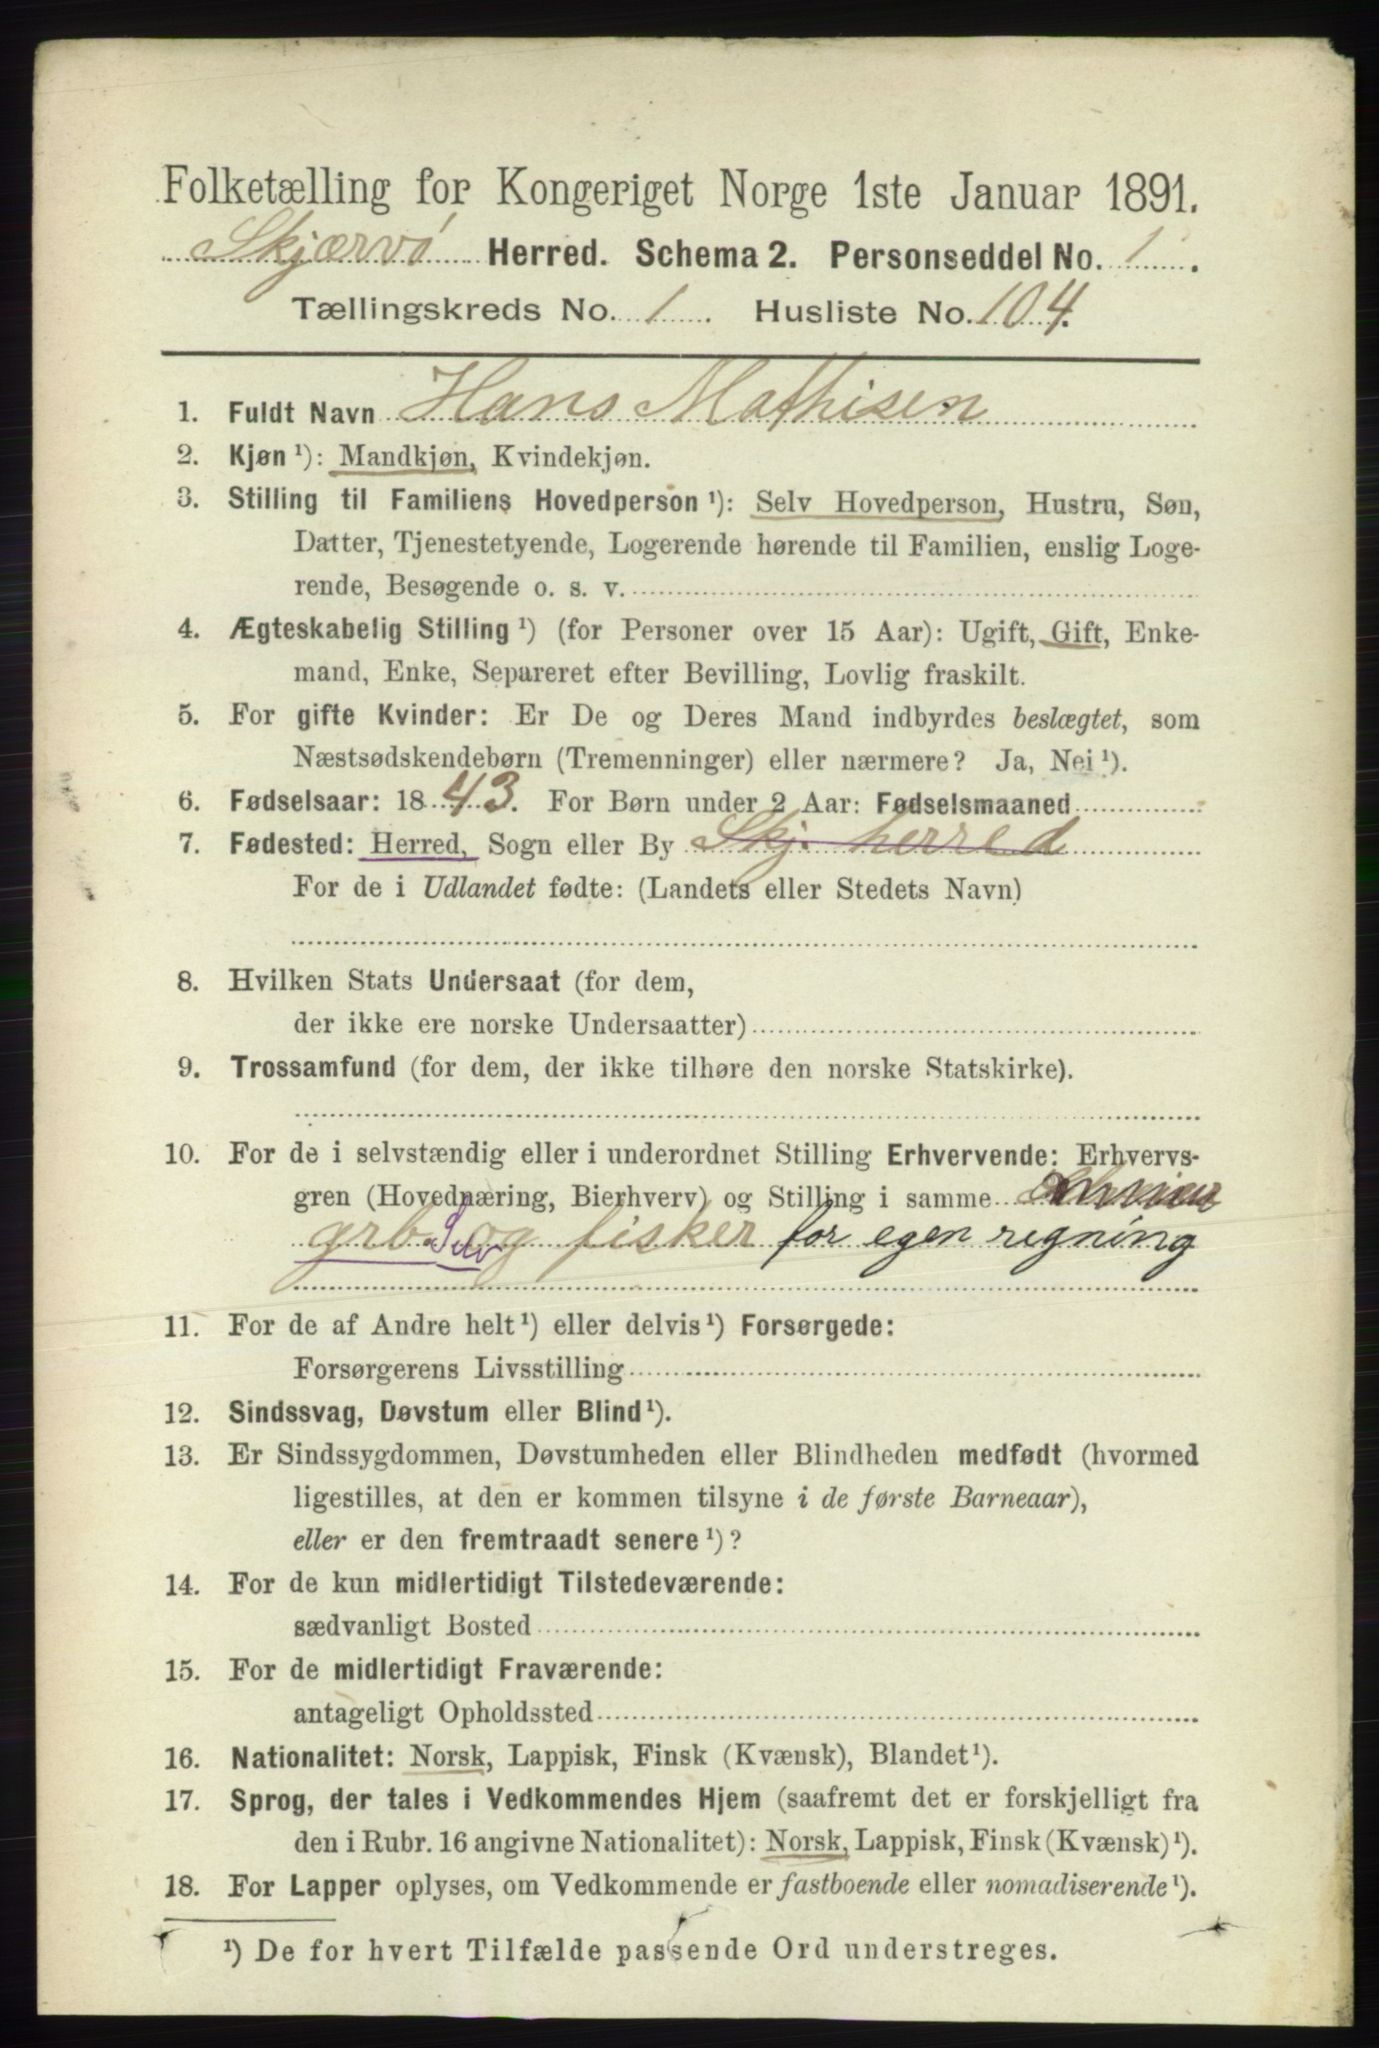 Folketælling for Kongeriget Norge 1ste Januar 1891.
Skjærvø Herred. Schema 2. Personseddel No. 1.
Tællingskreds No. 1. Husliste No. 104.
1. Fuldt Navn Hans Mathisen
2. Kjøn ¹): Mandkjøn, Kvindekjøn.
3. Stilling til Familiens Hovedperson ¹): Selv Hovedperson, Hustru, Søn,
Datter, Tjenestetyende, Logerende hørende til Familien, enslig Loge-
rende, Besøgende o. s. v.
4. Ægteskabelig Stilling ¹) (for Personer over 15 Aar): Ugift, Gift, Enke-
mand, Enke, Separeret efter Bevilling, Lovlig fraskilt.
5. For gifte Kvinder: Er De og Deres Mand indbyrdes beslægtet, som
Næstsødskendebørn (Tremenninger) eller nærmere? Ja, Nei ¹).
6. Fødselsaar: 1843. For Børn under 2 Aar: Fødselsmaaned
7. Fødested: Herred, Sogn eller By Skj. herred
For de i Udlandet fødte: (Landets eller Stedets Navn)
8. Hvilken Stats Undersaat (for dem,
der ikke ere norske Undersaatter)
9. Trossamfund (for dem, der ikke tilhøre den norske Statskirke).
10. For de i selvstændig eller i underordnet Stilling Erhvervende: Erhvervs-
gren (Hovednæring, Bierhverv) og Stilling i samme
grb. og fisker for egen regning
11. For de af Andre helt ¹) eller delvis ¹) Forsørgede:
Forsørgerens Livsstilling
12. Sindssvag, Døvstum eller Blind ¹).
13. Er Sindssygdommen, Døvstumheden eller Blindheden medfødt (hvormed
ligestilles, at den er kommen tilsyne i de første Barneaar),
eller er den fremtraadt senere ¹)?
14. For de kun midlertidigt Tilstedeværende:
sædvanligt Bosted
15. For de midlertidigt Fraværende:
antageligt Opholdssted
16. Nationalitet: Norsk, Lappisk, Finsk (Kvænsk), Blandet ¹).
17. Sprog, der tales i Vedkommendes Hjem (saafremt det er forskjelligt fra
den i Rubr. 16 angivne Nationalitet): Norsk, Lappisk, Finsk (Kvænsk) ¹).
18. For Lapper oplyses, om Vedkommende er fastboende eller nomadiserende ¹).
¹) De for hvert Tilfælde passende Ord understreges.